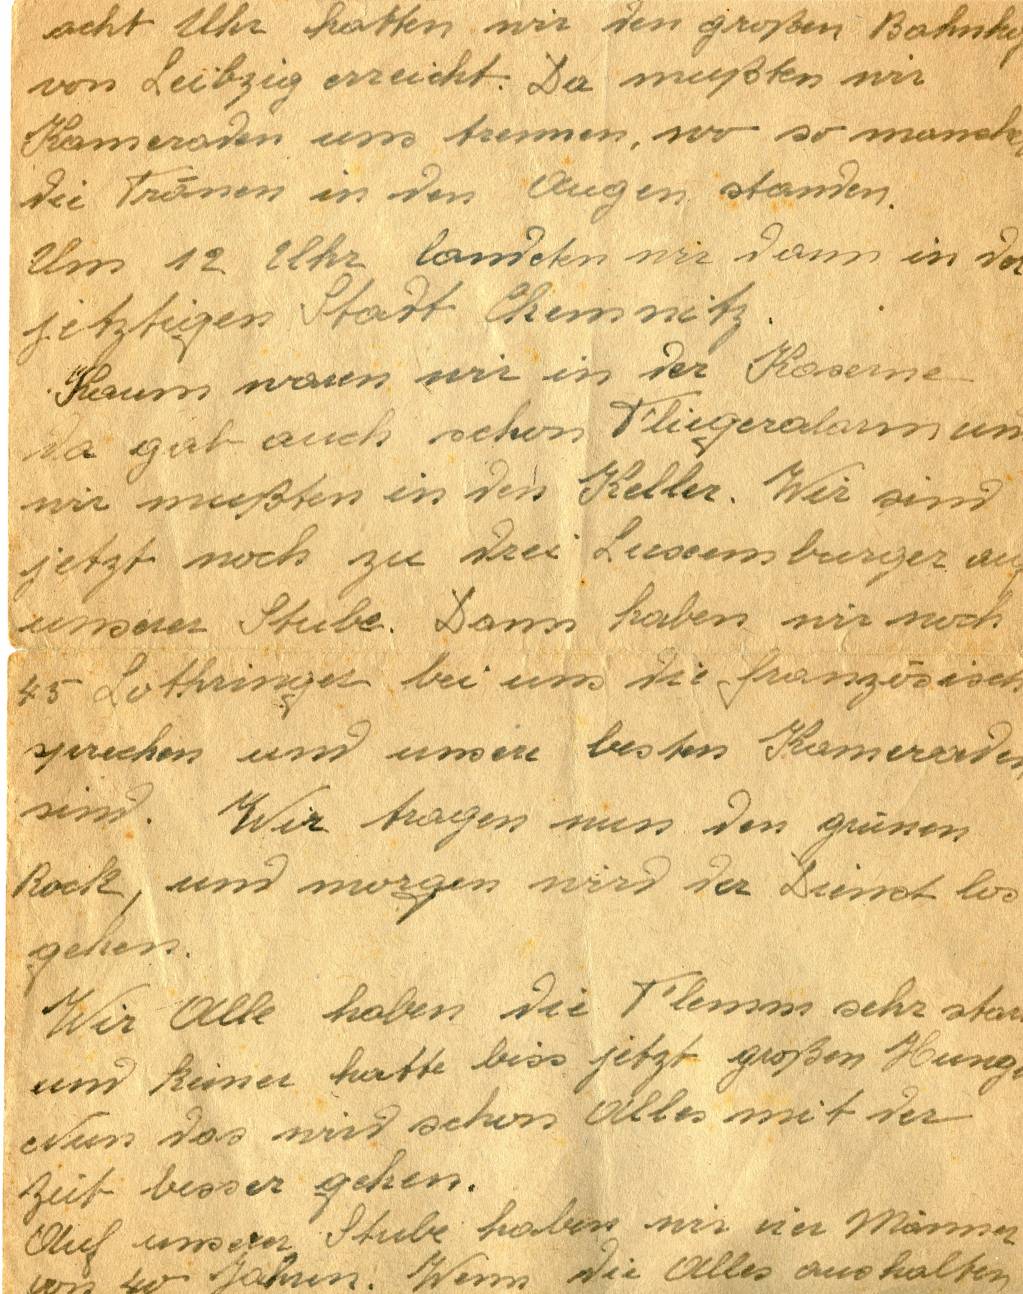 acht Uhr hatten wir den großen Bahnho
von Leibzig erreicht. Da mußten wir
Kameraden uns trennen, wo so manch
die Tränen in den Augen standen.
Um 12 Uhr landeten wir dann in der
jetztigen Stadt Chemnitz.
Kaum waren wir in der Kaserne
da gab auch schon Fliegeralarm un
wir mußten in den Keller. Wir sind
jetzt noch zu drei Luxemburger auf
unserer Stube. Dann haben wir noch
45 Lothringer bei uns die französisch
sprechen und unsere besten Kamerarden
sind. Wir tragen nun den grünen
Rock, und morgen wird der Dienst los
gehen.
Wir Alle haben die Flemm sehr star
und keiner hatte biss jetzt großen Hunge
Nun das wird schon Alles mit der
Zeit besser gehen.
Auf unserer Stube haben wir vier Männer
von 40 Jahren. Wenn die Alles aushalten